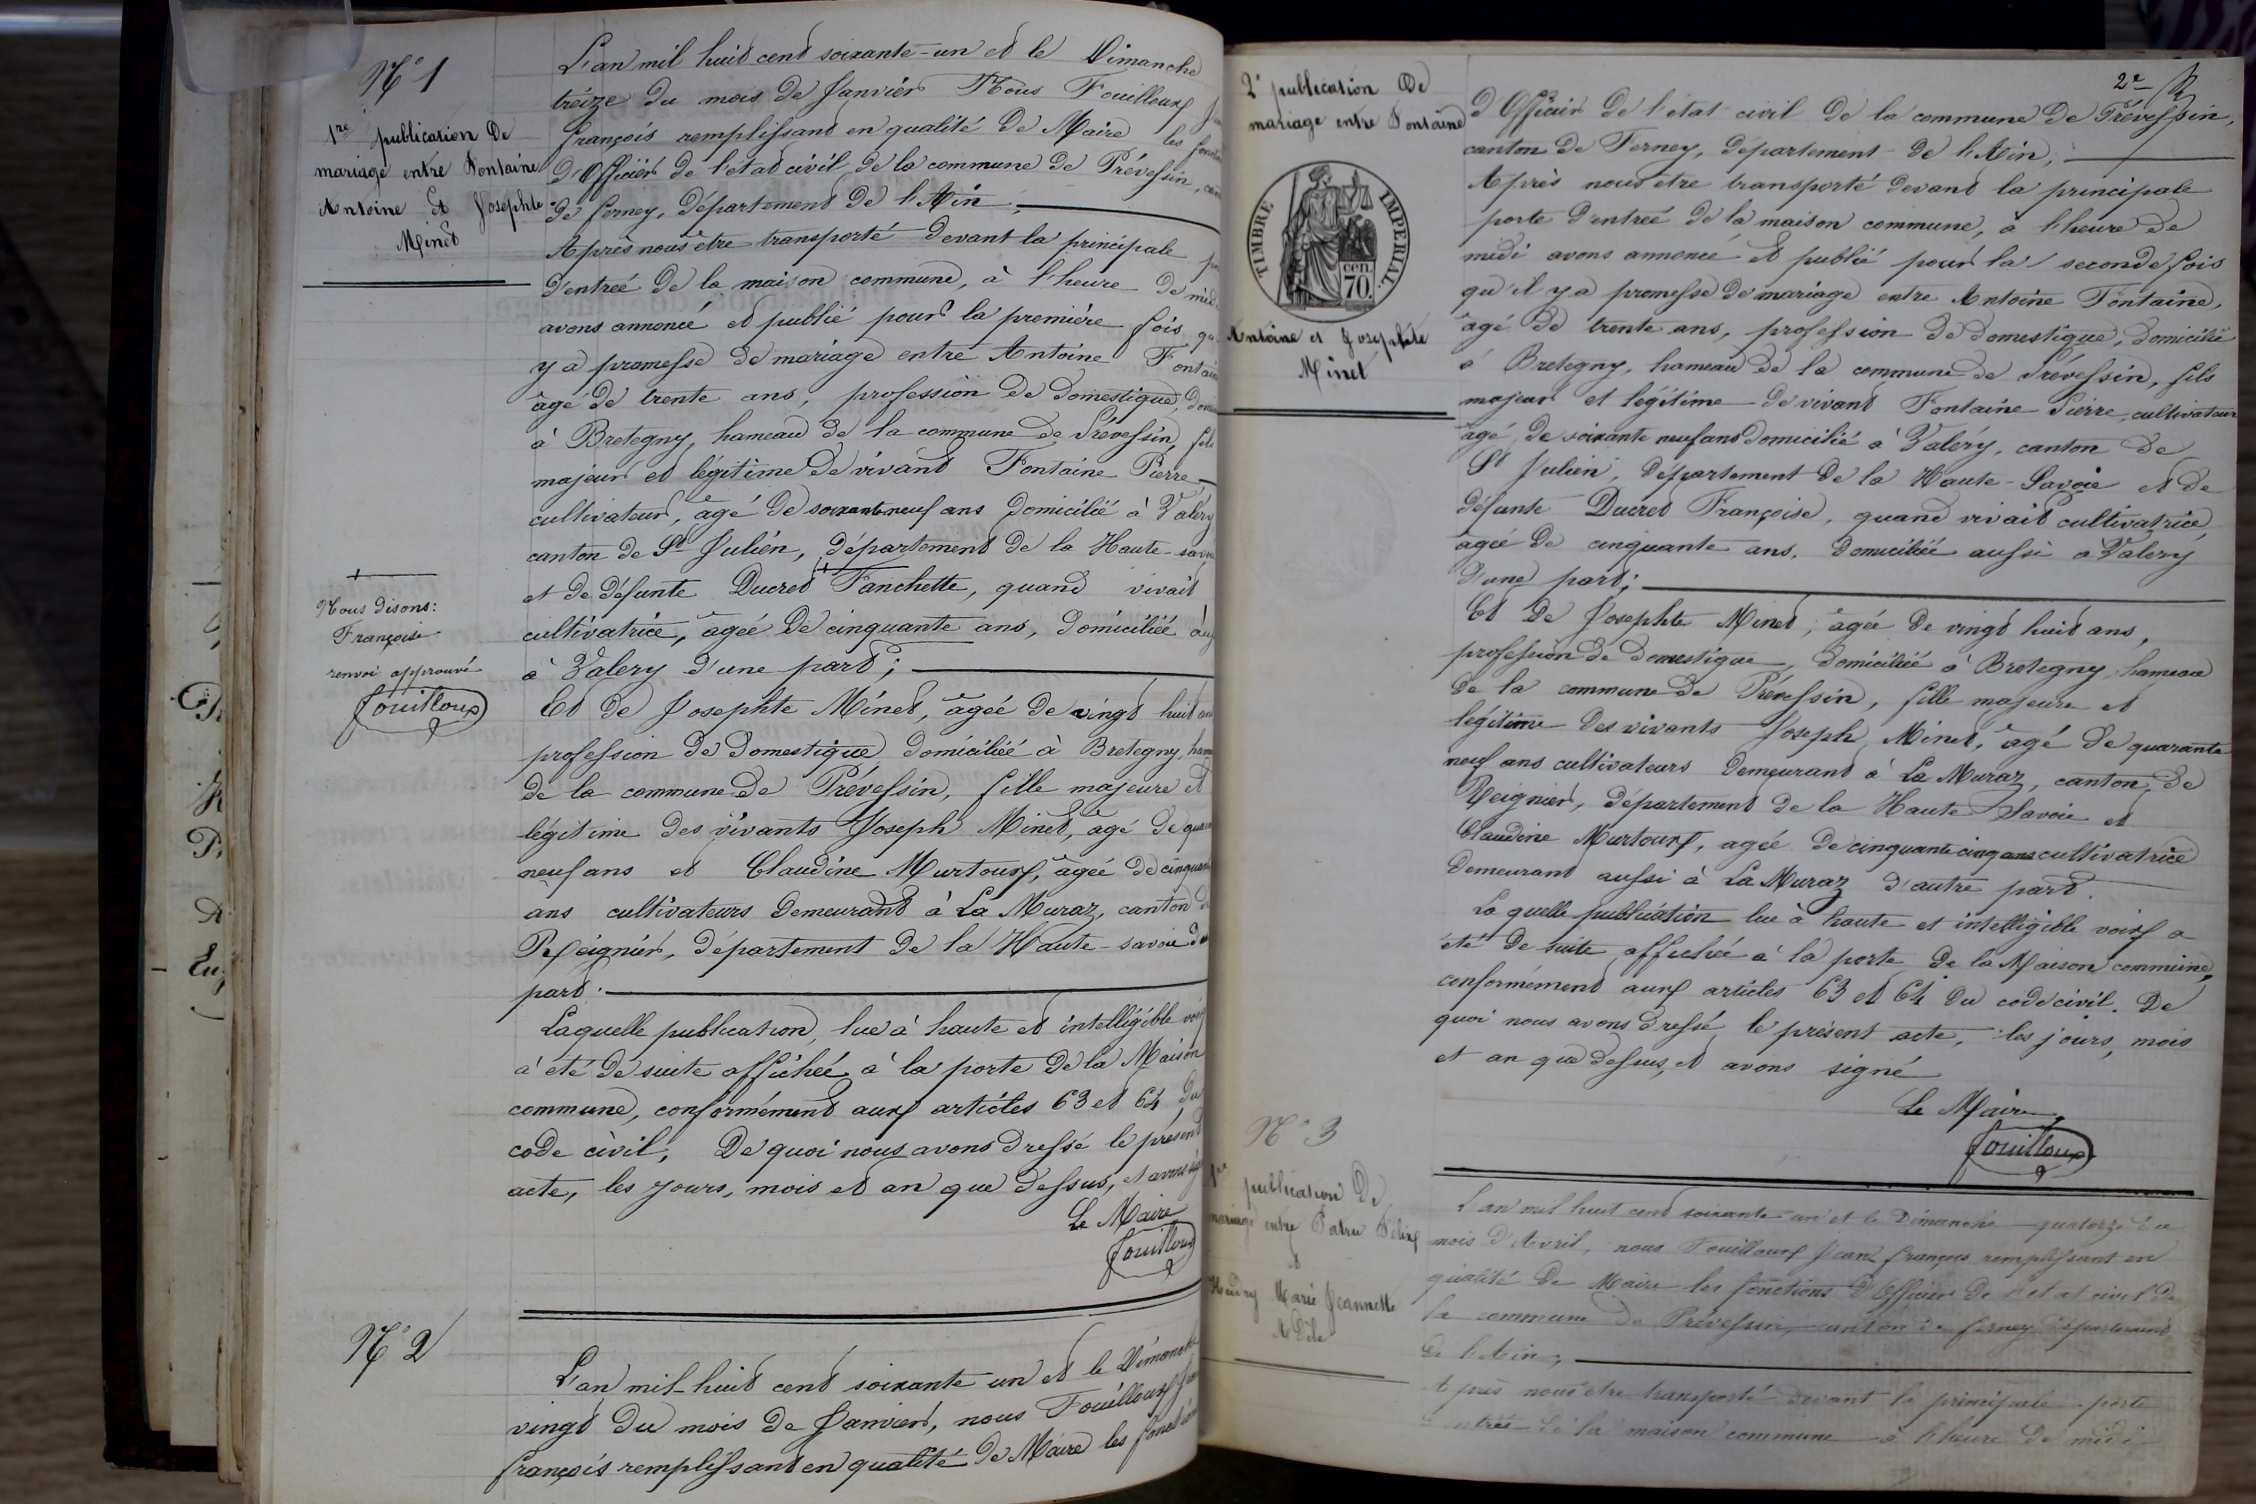 N° 1
1re publication de
mariage entre Fontaine
Antoine et Josephte
Minet
L'an mil huit cent soixante-un et le Dimanche
treize du mois de Janvier Nous Fouilloux
françois remplissant en qualité de Maire les
d'Officier de l'état civil de la commune de Prévessin,
de ferney, département de l'Ain;
Après nous être transporté devant la principale
d'entreé de la maison commune, à l'heure de midi
avons annoncé et publié pour la première fois,
y a promesse de mariage entre Antoine Fontaine
âgé de trente ans, profession de domestique,
à Bretegny, hameau de la commune de Prévessin, fils
majeur et légitime de vivant Fontaine Pierre
cultivateur, âgé de soixante neuf ans domicilié à Valéry
canton de St Julien, département de la Haute-savoie
et de défunte Ducret Fanchette, quand vivait
cultivatrice, âgeé de cinquante ans, domiciliéé
à Valery d'une part;
Nous disons:
Françoise
renvoi approuvé
Fouilloux
Et de Josephte Minet, âgeé de vingt huit ans
profession de domestique, domiciliéé à Bretegny,
de la commune de Prévessin, fille majeure et
légitime des vivants Joseph Minet, âgé de
neuf ans et Claudine Murtoux, âgeé de cinquante
ans cultivateurs demeurant à La Muraz, canton de
Reignier, département de la Haute-savoie
part.
Laquelle publication, lue à haute et intelligible voix
à eté de suite affichéé à la porte de la Maison
commune, conformément aux articles 63 et 64 du
code civil, De quoi nous avons dressé le présent
acte, les jours, mois et an que dessus, et avons
Le Maire
Fouilloux
N° 2
L'an mil-huit cent soixante un et le Dimanche
vingt du mois de Janvier, nous Fouilloux
françois remplissant en qualité de Maire les
2e
2e publication De
mariage entre Fontaine
TIMBRE IMPÉRIAL
cen.
70.
Antoine et Josephte
Minet
d'Officier de l'état civil de la commune de Prévessin,
canton de Ferney, département de l'Ain;
Après nous être transporté devant la principale
porte d'entreé de la maison commune, à l'heure de
midi avons annoncé et publié pour la seconde fois
qu'il y a promesse de mariage entre Antoine Fontaine,
âgé de trente ans, profession de domestique, domicilié
à Bretegny, hameau de la commune de Prévessin, fils
majeur et légitime de vivant Fontaine Pierre, cultivateur
âgé de soixante neuf ans domicilié à Valéry, canton de
St Julien, département de la Haute-Savoie et de
défunte Ducret Françoise, quand vivait cultivatrice,
ageé de cinquante ans, domiciliéé aussi à Valery
d'une part;
Et de Josephte Minet, âgée de vingt huit ans,
profession de domestique, domiciliéé à Bretegny, hameau
de la commune de Prévessin, fille majeure et
légitime des vivants Joseph Minet, âgé de quarante
neuf ans cultivateurs demeurant à La Muraz, canton de
Reignier, département de la Haute Savoie et
Claudine Murtoux, ageé de cinquante cinq ans cultivatrice
demeurant aussi à La Muraz d'autre part.
La quelle publication lue à haute et intelligible voix a
été de suite affichéé à la porte de la Maison commune,
conformément aux articles 63 et 64 du code civil. De
quoi nous avons dressé le présent acte, les jours, mois
et an que dessus, et avons signé
Le Maire,
Fouilloux
N° 3
1re publication De
mariage entre
et
Marie Jeannette
Adèle
L'an mil huit cent soixante un et le Dimanche quatorze du
mois d'Avril, nous Fouilloux Jean françois remplissant en
qualité de Maire les fonctions d'Officier de l'etat civil de
la commune de Prévessin, canton de ferney département
de l'Ain;
Après nous être transporté devant la principale porte
d'entrée de la maison commune à l'heure de midi